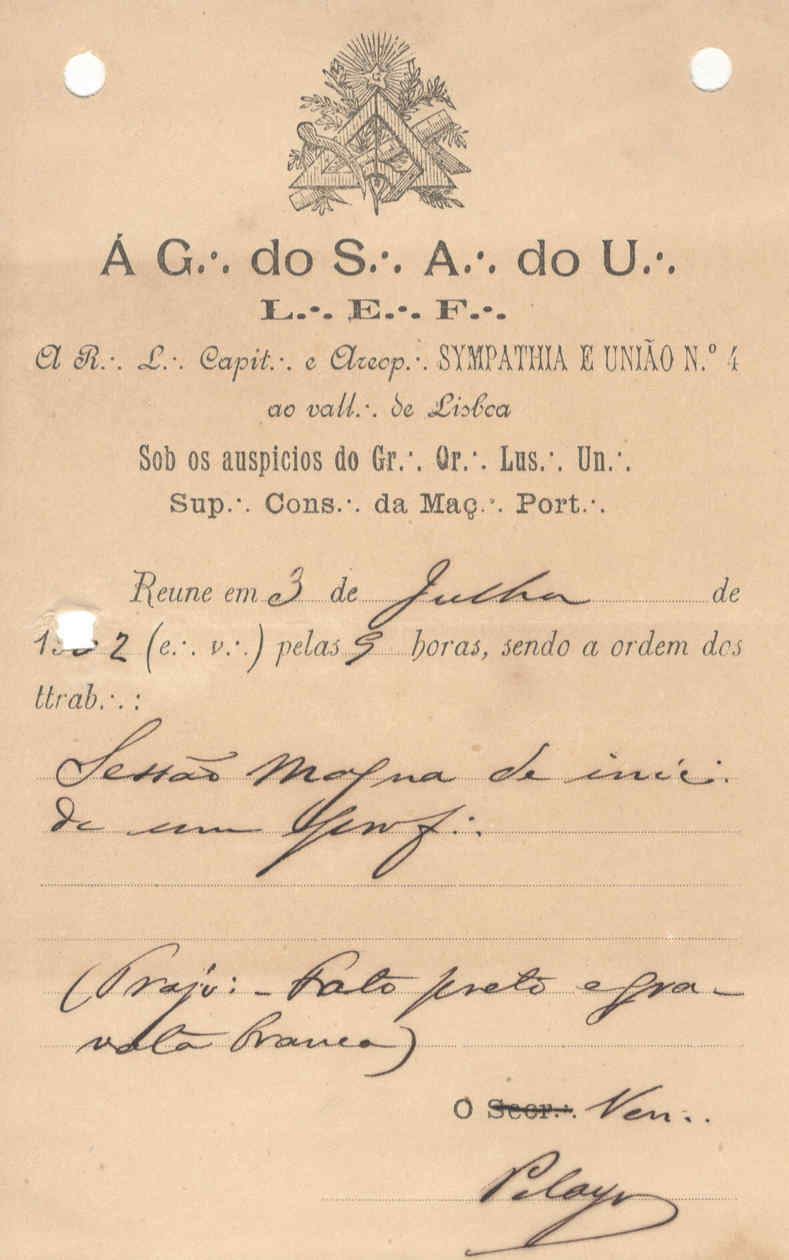 Á G.·. do S.·. A.·. do U.·.
L.·. E.·. F.·.
A R.·. L.·. Capit.·. e Areop.·. SYMPATHIA E UNIÃO N.º 4
ao vall.·. de Lisboa
Sob os auspicios do Gr.·. Or.·. Lus.·. Un.·.
Sup.·. Cons.·. da Maç.·. Port.·.
Reune em 3 de Julho de
2 (e.·. v.·.) pelas 9 horas, sendo a ordem dos
ttrab.·. :
Sessão Magna de inic.·.
de um prof.·.
(Trajo: - Fato preto e gra-
vata branca)
O Secr.·. Ven.·.
Pelayo